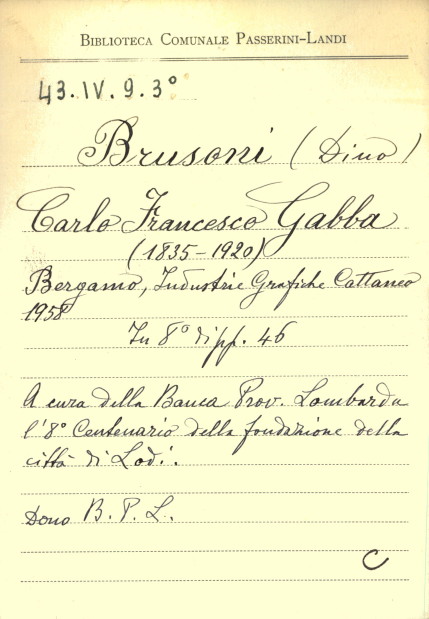 BIBLIOTECA COMUNALE PASSERINI-LANDI
43.IV.9.3°
Brusoni (Dino)
Carlo Francesco Gabba
(1835-1920)
Bergamo, Industrie Grafiche Cattaneo
1958
In 8° di pp. 46
A cura della Banca Prov. Lombarda
l'8° Centenario della fondazione della
città di Lodi.
Dono B. P. L.
C